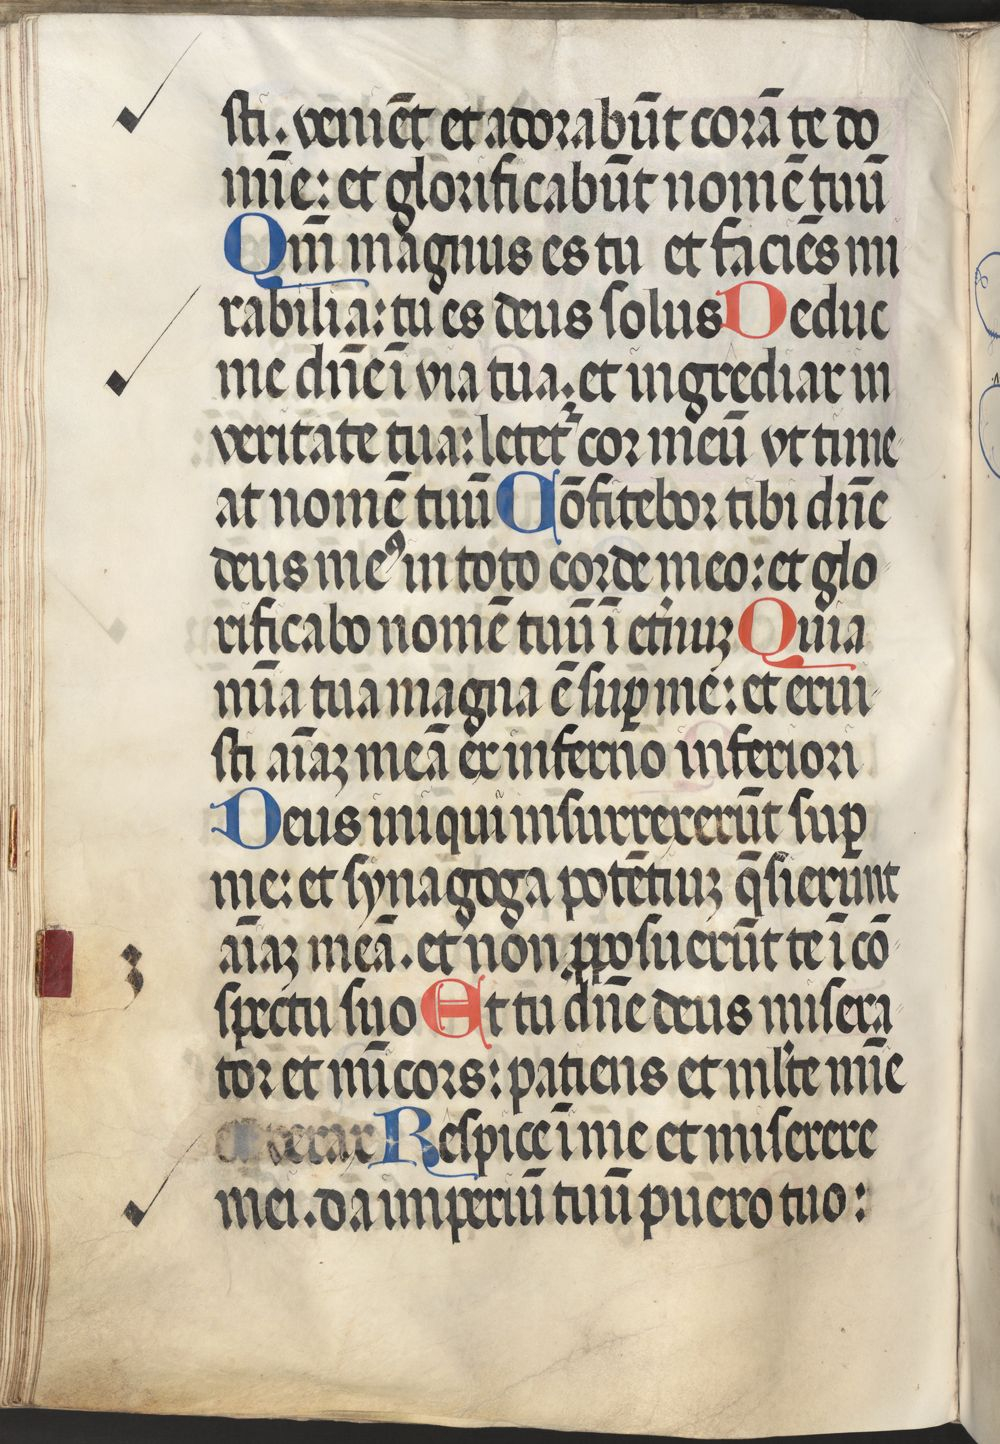 sti. veniēt et adorabūt corā te do
mīe: et glorificabūt nomē tuū
Qm̄ magnus es tu et faciēs mi
rabilia: tu es deus solus Deduc
me dn̄e ī via tua. et ingrediar in
veritate tua: letet᷑ cor meū vt time
at nomē tuū Cōfitebor tibi dn̄e
deus meꝰ in toto corde meo: et glo
rificabo nomē tuū ī et̓nuꝫ Quia
mīa tua magna ē suꝑ me: et erui
sti aīaꝫ meā ex inferno inferiori
Deus iniqui insurrexerūt suꝑ
me: et synagoga potētiuꝫ q̄sierunt
aīaꝫ meā. et non ꝓposuerūt te ī cō
spectu suo Et tu dn̄e deus misera
tor et mīcors: patiens et ml̓te mīe
verax Respice ī me et miserere
mei. da imperiū tuū puero tuo: